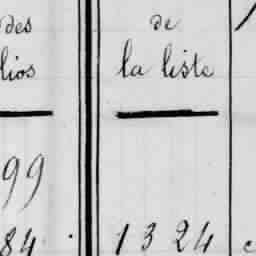 des
lios
99
84.
de
la liste
1324